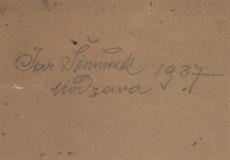 Jar Šimůnek 1937
Modrava